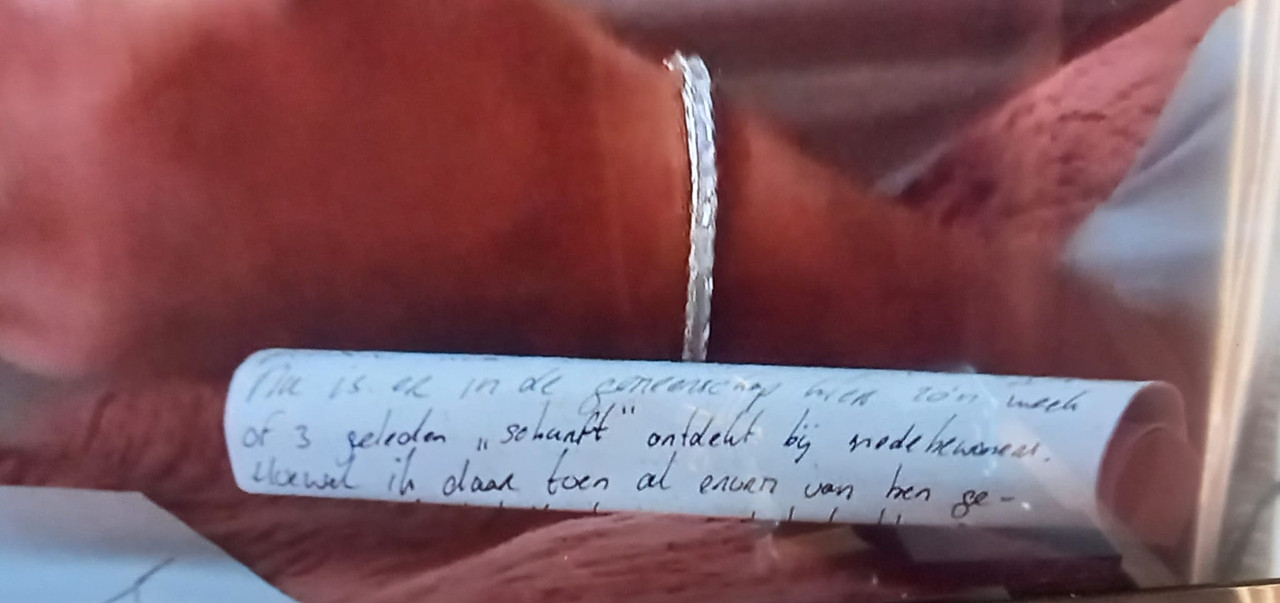 Nu is er in de gemeenschap hier zo'n week
of 3 geleden „schurft" ontdekt bij medebewoners.
Hoewel ik daar toen al ervan ben ge-